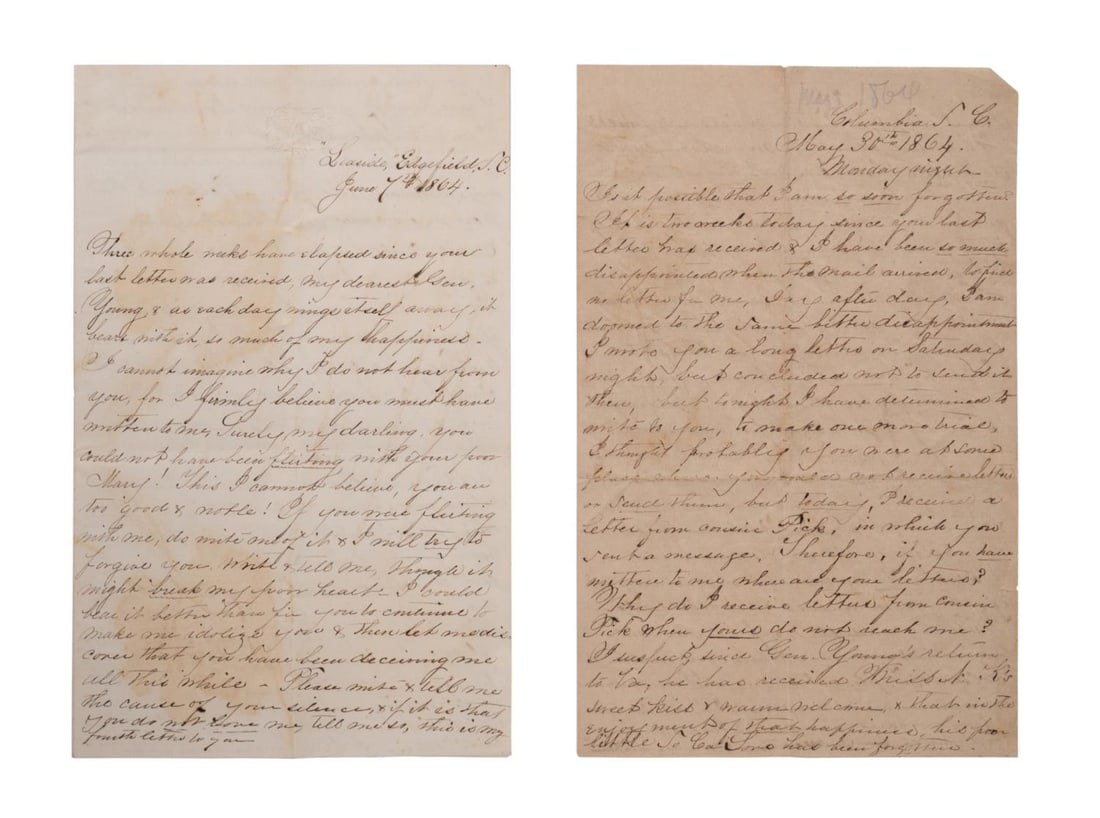 "Seaside," Edgefield, S. C.
June 7th 1864.
Three whole weeks have elapsed since your
last letter was received, my dearest Gen.
Young, & as each day wings itself away, it
bears with it so much of my happiness.
I cannot imagine why I do not hear from
you, for I firmly believe you must have
written to me, Surely, my darling, you
could not have been flirting with your poor
Mary! This I cannot believe, you are
too good & noble! If you were flirting
with me, do write me of it & I will try to
forgive you. Write & tell me, though it
might break my poor heart - I could
bear it better than for you to continue to
make me idolize you & then let me dis
cover that you have been deceiving me
all this while - Please write & tell me
the cause of your silence, & if it is that
you do not love me, tell me so, this is my
fourth letter to you
May 1864
Columbia S. C.
May 30th 1864.
Monday night
Is it possible that I am so soon forgotten?
It is two weeks today since your last
letter was received & I have been so much
disappointed when the mail arrived, to find
no letter for me, Day after day, I am
doomed to the same bitter disappointment
I wrote you a long letter on Saturday
night, but concluded not to send it
then, but tonight I have determined to
write to you, to make one more trial,
I thought probably you were at some
place where you could not receive letters
or send them, but today, I received a
letter from cousin Pick, in which you
sent a message, Therefore, if you have
written to me where are your letters?
Why do I receive letters from cousin
Pick when yours do not reach me?
I suspect since Gen. Young's return
to Va, he has received Miss A.
sweet kiss & warm welcome, & that in the
enjoyment of that happiness, his poor
little So Ca has been forgotten.